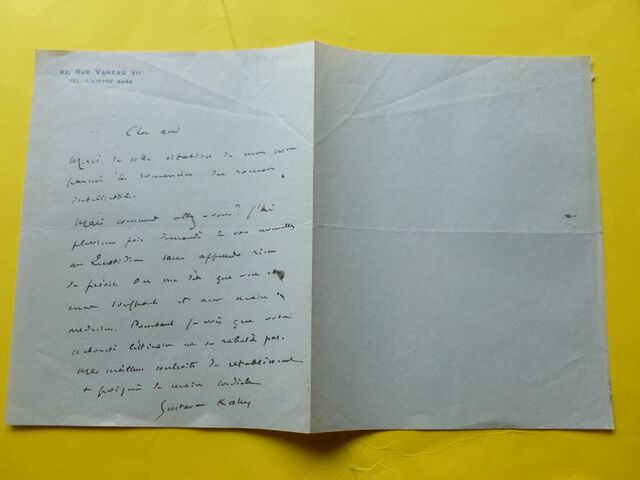 82, RUE VANEAU VIIe
TÉL. LITTRÉ
Cher ami
Merci de cette citation de mon nom
parmi les romanciers du roman
intellectuel.
Mais comment allez-vous? J'ai
plusieurs fois demandé de vos nouvelles
au Quotidien sans apprendre rien
de précis. On me dit que vous
encore souffrant et aux mains de
médecins. Pourtant je vois que votre
activité littéraire ne se ralentit pas.
Mes meilleurs souhaits de rétablissement
+ poignée de mains cordiale
Gustave Kahn